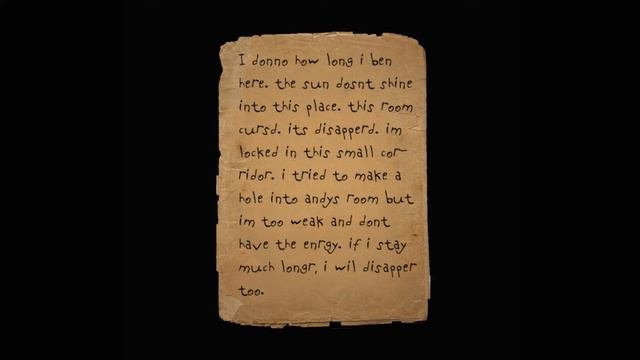 I donno how long i ben
here. the sun dosnt shine
into this place. this room
cursd. its disapperd. im
locked in this small cor-
ridor. i tried to make a
hole into andys room but
im too weak and dont
have the enrgy. if i stay
much longr, i wil disapper
too.